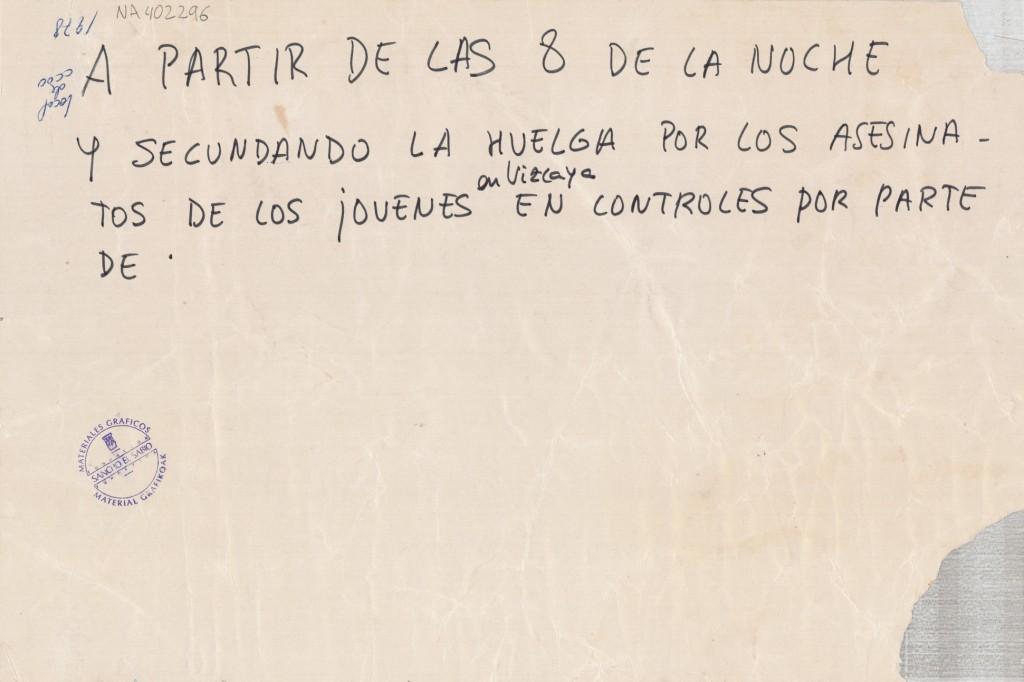 NA402296
1978
local
de
ccoo
A PARTIR DE LAS 8 DE LA NOCHE
Y SECUNDANDO LA HUELGA POR LOS ASESINA-
en Vizcaya
TOS DE LOS jOVENES EN CONTROLES POR PARTE
DE .
MATERIALES GRAFICOS
SANCHO EL SABIO
MATERIAL GRAFIKOAK